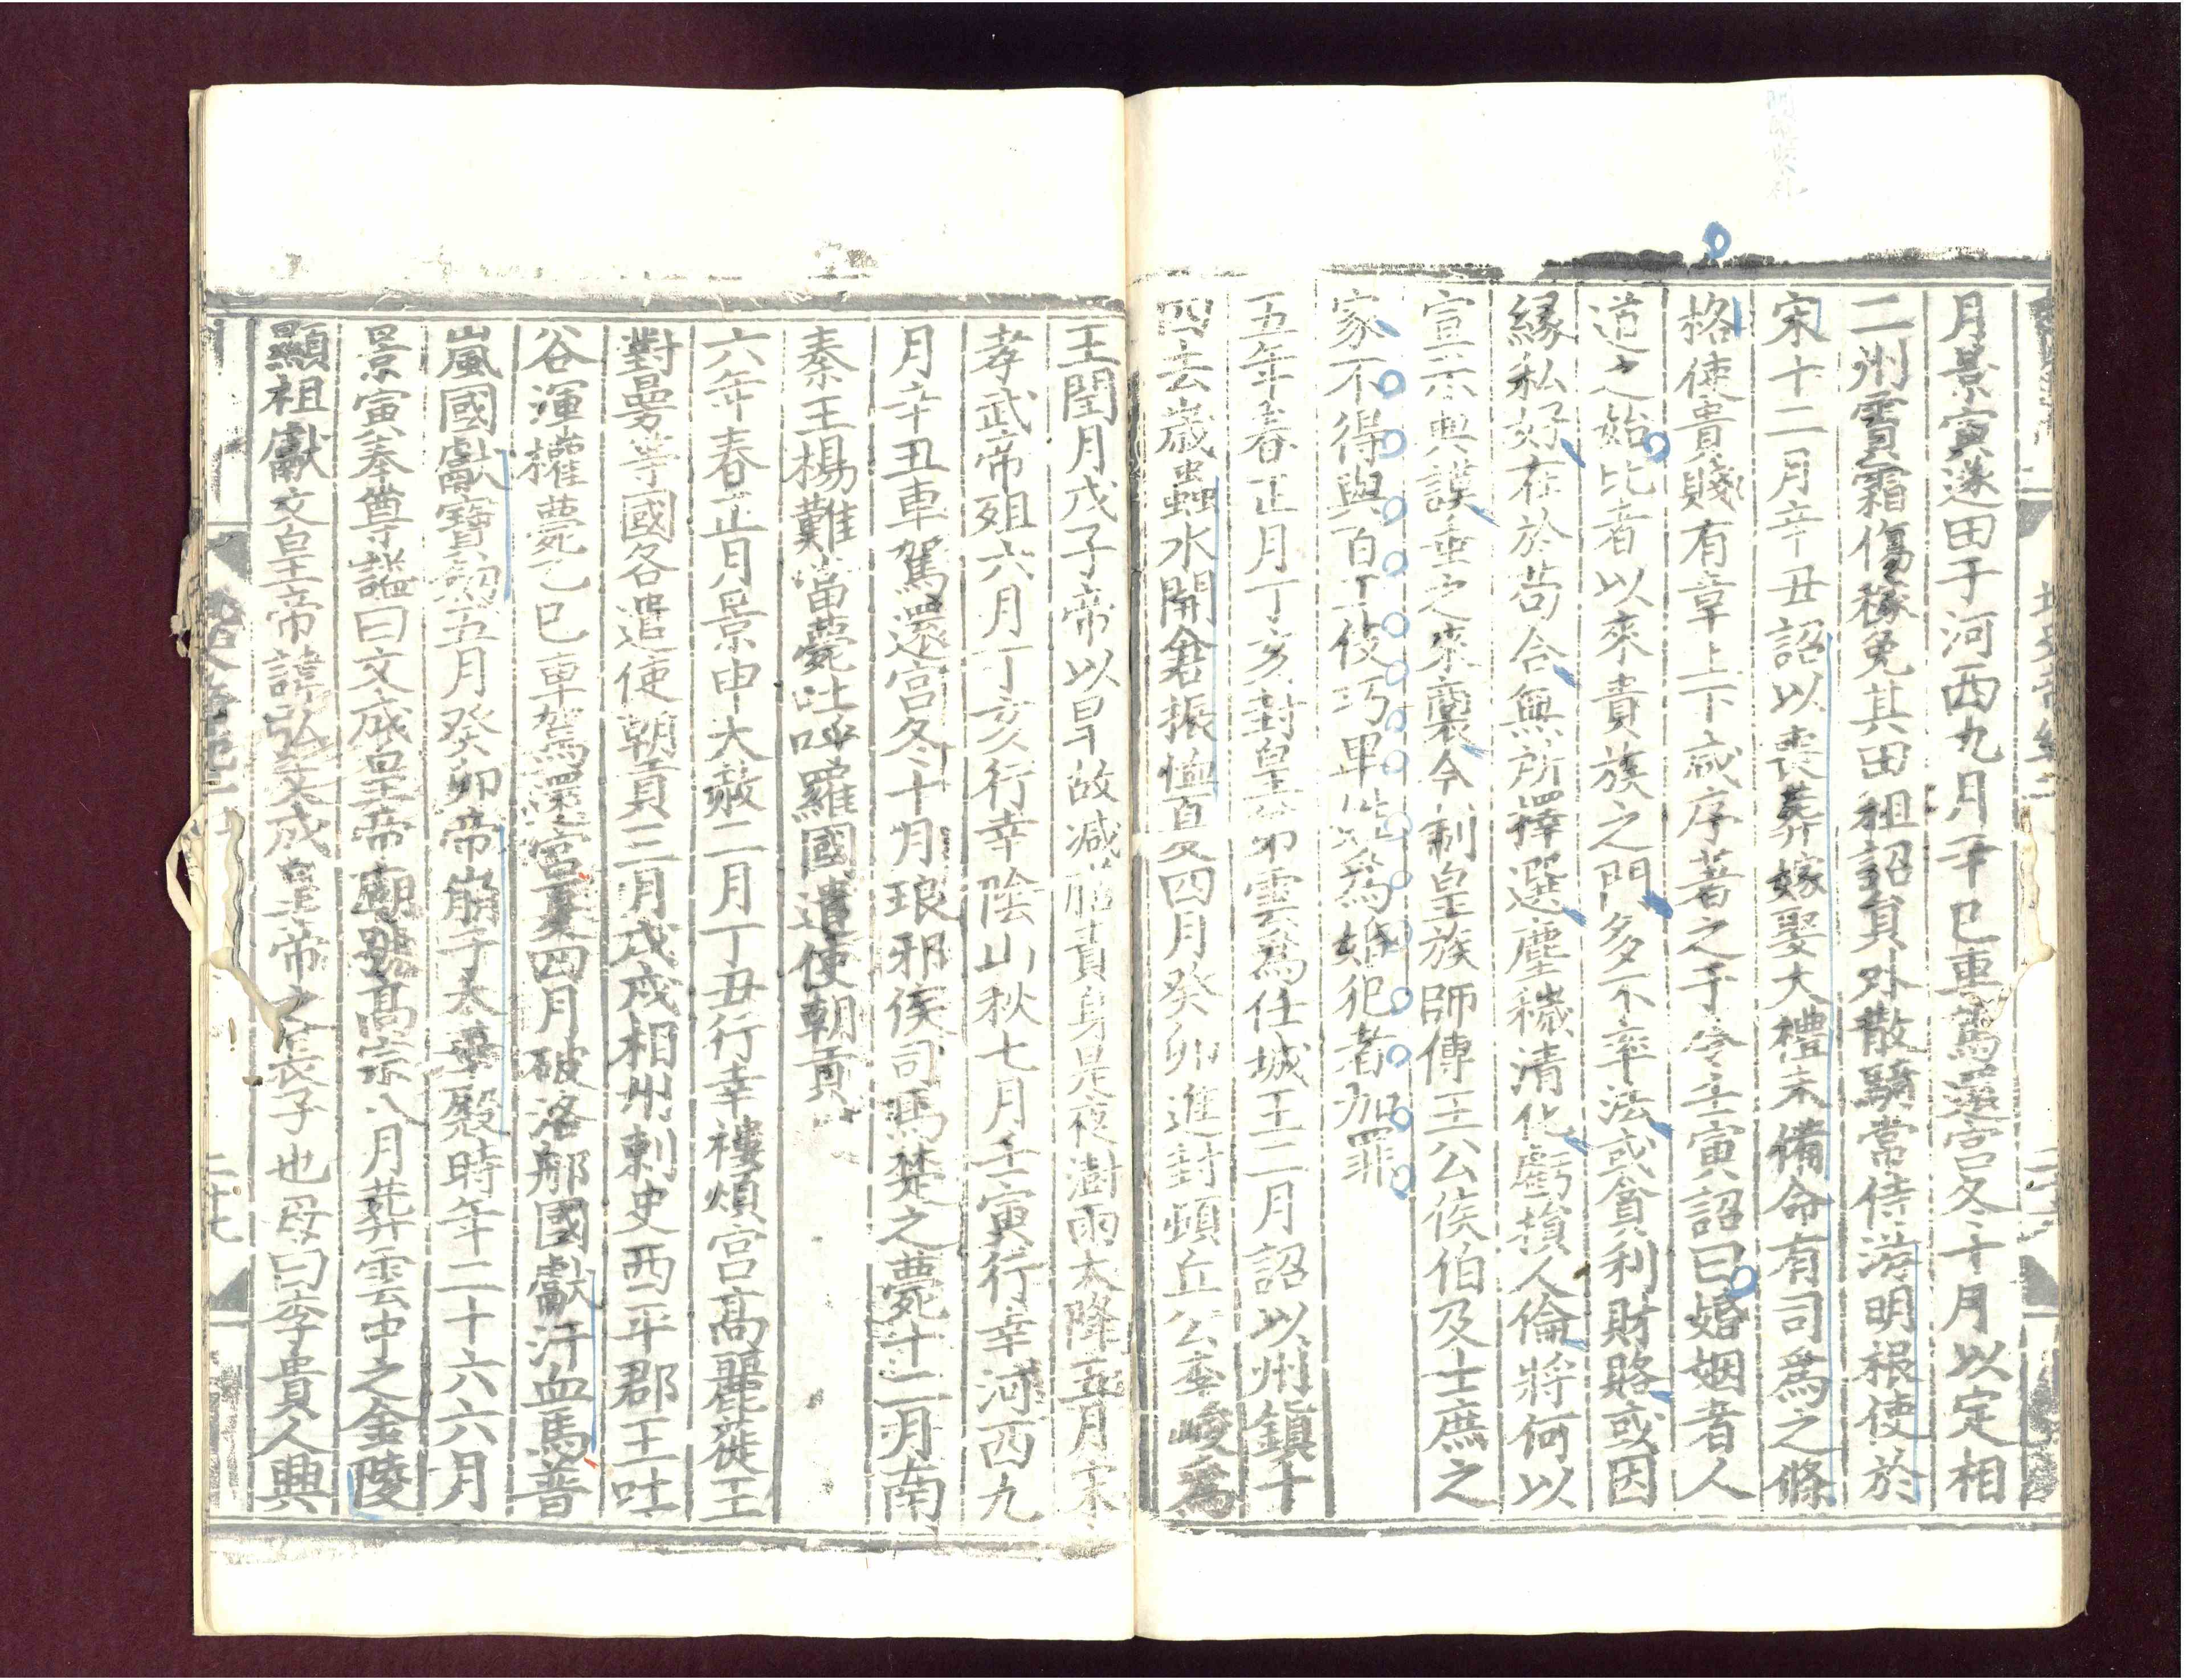 月景寅遂田于河西九月辛巳車駕還宮冬十月以定相
二州霣霜傷稼免其田租詔員外散騎常侍游明根使於
宋十二月辛丑詔以喪葬嫁娶大禮未備命有司爲之條
格使貴賤有章上下咸序著之于令壬寅詔曰婚姻者人
道之始比者以來貴族之門多不率法或貪利財賂或因
緣私好在於苟合無所擇選塵穢清化虧損人倫將何以
宣示典謨垂之來裔今制皇族師傅王公侯伯及士庶之
家不得與百工伎巧卑姓爲婚犯者加罪
五年春正月丁亥封皇弟雲爲任城王二月詔以州鎮十
四去歲蟲水開倉振恤夏四月癸卯進封頓丘公李峻爲
王閏月戊子帝以旱故減膳責身是夜澍雨大降五月宋
孝武帝殂六月丁亥行幸陰山秋七月壬寅行幸河西九
月辛丑車駕還宮冬十月琅邪侯司馬楚之薨十二月南
秦王楊難當薨吐呼羅國遣使朝貢
六年春正月景申大赦二月丁丑行幸樓煩宮高麗蓰王
對曼等國各遣使朝貢三月戊戌相州刺史西平郡王吐
谷渾權薨乙巳車駕還宮夏四月破洛那國獻汗血馬普
嵐國獻寶劒五月癸卯帝崩于太華殿時年二十六六月
景寅奉尊謚曰文成皇帝廟號高宗八月葬雲中之金陵
顯祖獻文皇帝諱弘文成皇帝之長子也母曰李貴人興
二十七